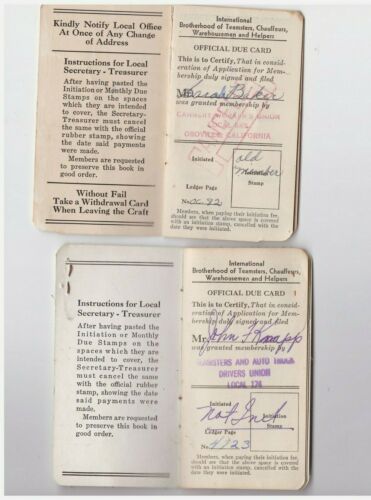 Kindly Notify Local Office
At Once of Any Change
of Address
Instructions for Local
Secretary - Treasurer
After having pasted the
Initiation or Monthly Due
Stamps on the spaces
which they are intended
to cover, the Secretary-
Treasurer must cancel
the same with the official
rubber stamp, showing
the date said payments
were made.
Members are requested
to preserve this book in
good order.
Without Fail
Take a Withdrawal Card
When Leaving the Craft
International
Brotherhood of Teamsters, Chauffeurs,
Warehousemen and Helpers
OFFICIAL DUE CARD
This is to Certify, That in consid-
eration of Application for Mem-
bership duly signed and filed
Baker
was granted membership by
CANNERY WORKERS UNION
OROVILLE, CALIFORNIA
Initiated
old
member
Stamp
Ledger Page
No.
Members, when paying their initiation fee,
should see that the above space is covered
with an initiation stamp, cancelled with the
date they were initiated.
Instructions for Local
Secretary - Treasurer
After having pasted the
Initiation or Monthly
Due Stamps on the
spaces which they are
intended to cover, the
Secretary-Treasurer
must cancel the same
with the official rubber
stamp, showing the date
said payments were
made.
Members are requested
to preserve this book in
good order.
International
Brotherhood of Teamsters, Chauffeurs,
Warehousemen and Helpers
OFFICIAL DUE CARD
This is to Certify, That in consid-
eration of Application for Mem-
bership duly signed and filed
Mr. John F Knapp
was granted membership by
TEAMSTERS AND AUTO TRUCK
DRIVERS UNION
LOCAL 174
Initiated
Initiation
Not Ind
Stamp
Ledger Page
No. 4723
Members, when paying their initiation fee,
should see that the above space is covered
with an initiation stamp, cancelled with the
date they were initiated.